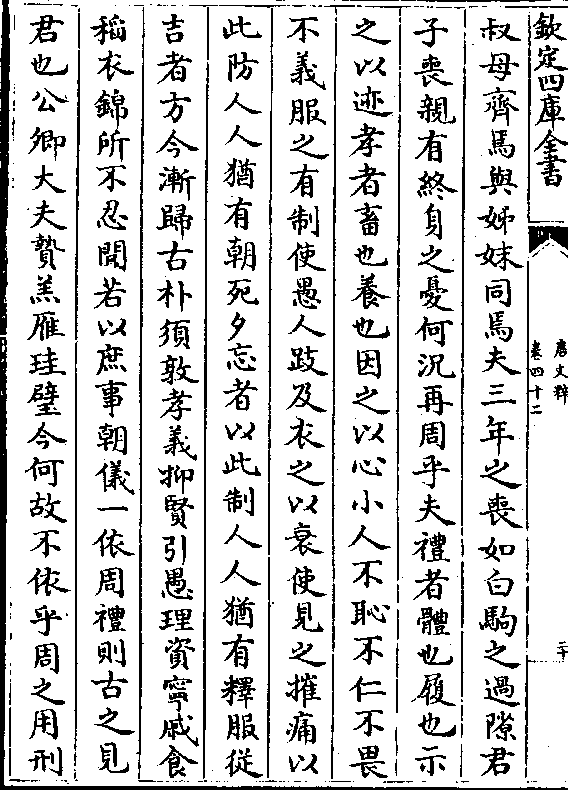 欽定四庫全書
唐文粹
卷四十二
二十
叔母齊焉與姊妹同焉夫三年之喪如白駒之過隙君
子喪親有終身之憂何況再周乎夫禮者體也履也示
之以迹孝者畜也養也因之以心小人不恥不仁不畏
不義服之有制使愚人跂及衣之以衰使見之摧痛以
此防人人猶有朝死夕忘者以此制人人猶有釋服從
吉者方今漸歸古朴須敦孝義抑賢引愚理資寧戚食
稻衣錦所不忍聞若以庶事朝儀一依周禮則古之見
君也公卿大夫贄羔雁珪璧今何故不依乎周之用刑